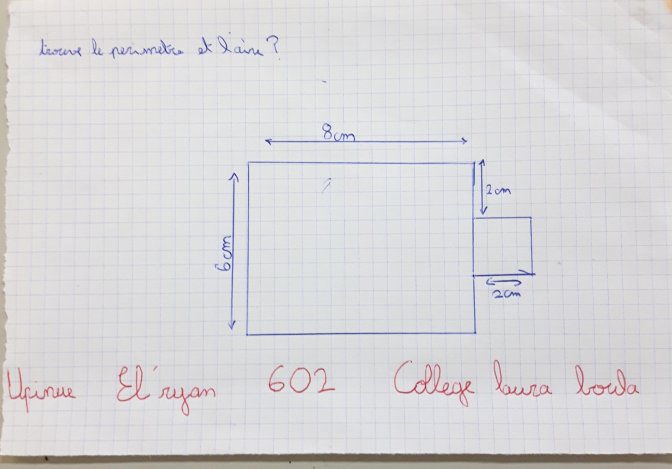 trouve le perimetre et l'aire ?
8cm
2cm
6cm
2cm
El'ryan 602 College laura